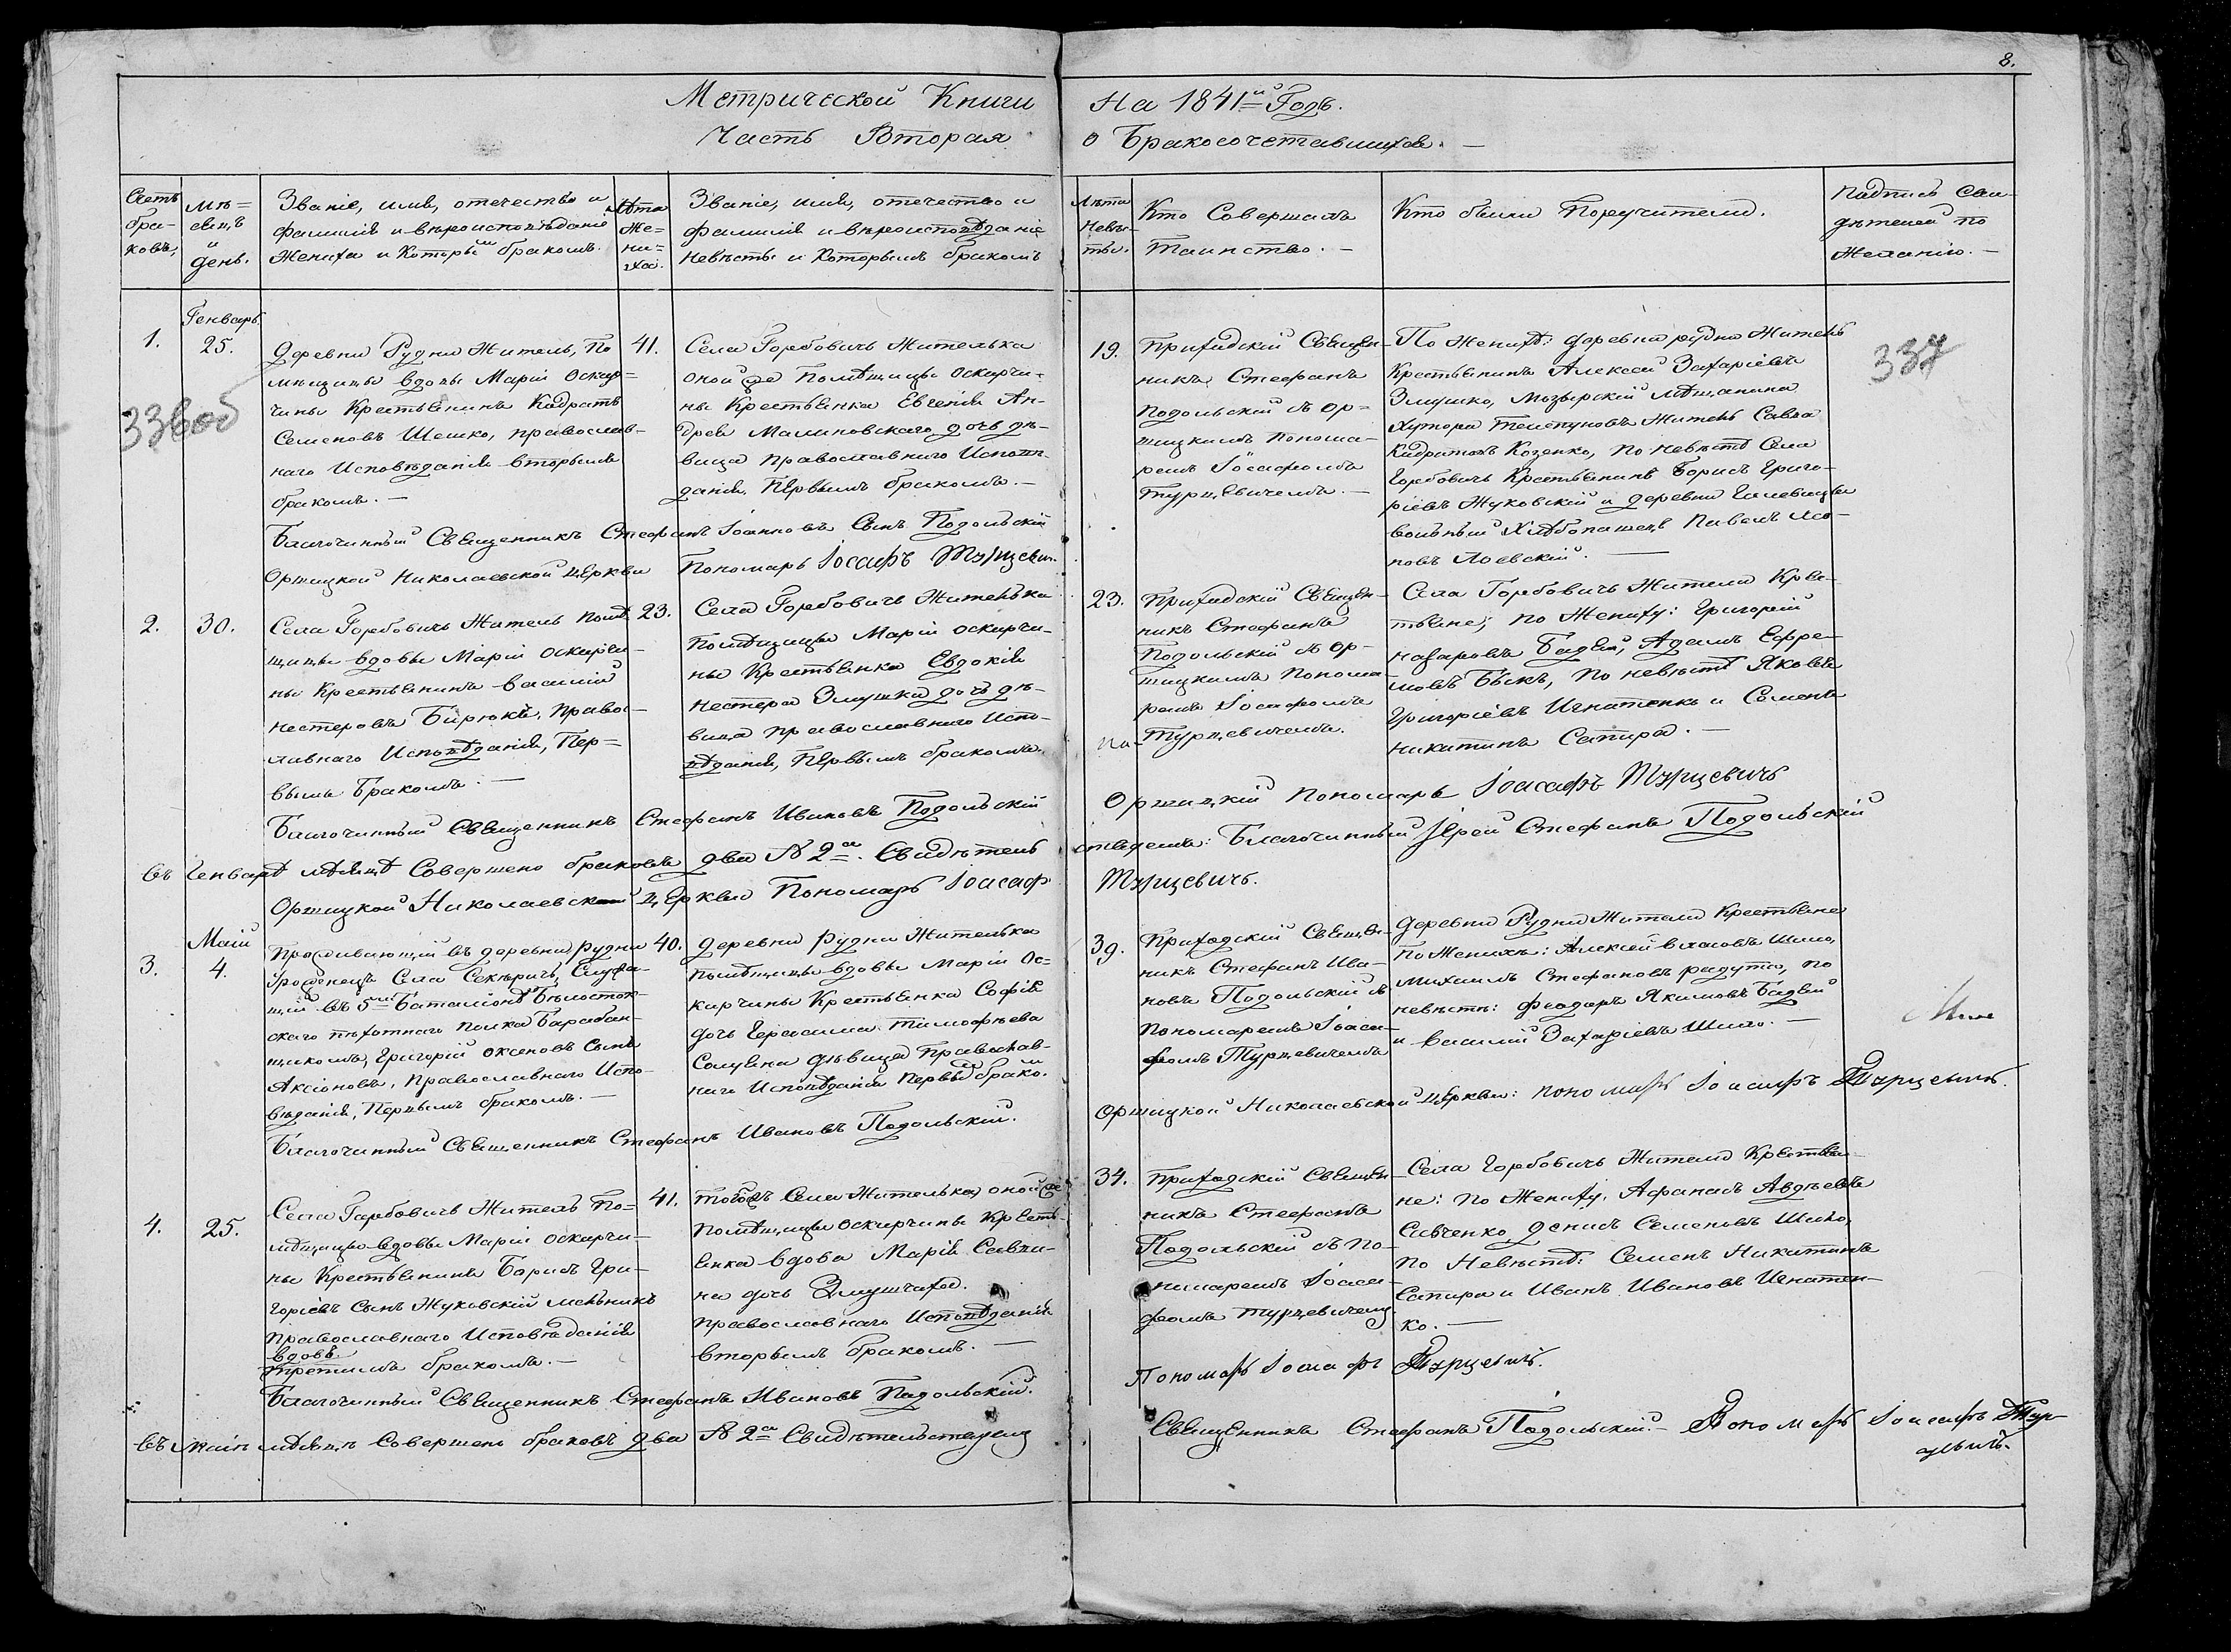 8.
Метрической Книги На 1841й Годъ.
Часть Вторая о Бракосочетавшихся.
Счетъ браковъ,
Мѣсяцъ и день.
Званіе, имя, отечество и
фамилія и вѣроисповѣданіе
Жениха и Которымъ бракомъ.
Лѣта Жениха.
Званіе, имя, отечество и
фамилія и вѣроисповѣданіе
Невѣсты и Которымъ бракомъ
Лѣта Невѣсты.
Кто Совершалъ
Таинство.
Кто были Поручители.
Подпись Сви-
дѣтелей по
Желанію.
Генварь
1.
25.
336об
Деревни Рудни Житель, По
мѣщицы вдовы Маріи Оскир=
чины Крестьянинъ Кадратъ
Семеновъ Шешко, православ-
наго Исповѣданія вторымъ
бракомъ.
41.
Села Горбовичъ Жителька
оной же Помѣщицы Оскирчи-
ны Крестьянка Евгенія Ан-
дрея Малиновскаго дочь дѣ-
вица Православнаго Исповѣ-
данія, Первымъ бракомъ.
19.
Приходскій Священ-
никъ Стефанъ
Подольскій съ Ор=
шицкимъ Понома-
ремъ Іоасафомъ
Турцевичемъ.
По Женихѣ: деревни рудни Житель
Крестьянинъ Алексей Захаріевъ
Змушко, Мозырскій мѣщанинъ
Хутора Телепуновъ Житель Савва
Кадратовъ Козенко, по невѣстѣ Села
Горбовичъ Крестьянинъ Борисъ Григо-
ріевъ Жуковскій и деревни Галевицы
вольный Хлѣбопашецъ Павелъ Іоси-
повъ Лоевскій.
337
Благочинный Священникъ Стефанъ Іоанновъ Сынъ Подольскій
Оршицкой Николаевской церкви Пономарь Іосафъ Турцевич
2.
30.
Села Горбовичъ Житель Помѣ-
щицы вдовы Маріи Оскирчи-
ны Крестьянинъ Василій
Нестеровъ Бирюкъ, Правос-
лавнаго Исповѣданія, Пер=
вымъ Бракомъ.
23.
Села Горбовичъ Жителька
Помѣщицы Маріи Оскирчи-
ны Крестьянка Евдокія
Нестера Змушка дочь дѣ-
вица православнаго Испо-
вѣданія, Первымъ бракомъ.
23.
Приходскій Священ-
никъ Стефанъ
Подольскій съ Ор-
шицкимъ Понома-
ремъ Іоасафомъ
Турцевичемъ.
Села Горбовичъ Жители Крес-
тьяне; по Жениху: Григорій
Назаровъ Бадей, Адамъ Ефре-
мовъ Быкъ, по невѣстѣ Яковъ
Григоріевъ Игнатенко и Семенъ
Никитинъ Сатира.
Благочинный Священникъ Стефанъ Ивановъ Подольскій Оршицкій Пономарь Іоасафъ Турцевичъ
Въ Генварѣ мѣсяцѣ Совершено браковъ два № 2й. Свидѣтель ствуемъ: Благочинный Іерей Стефанъ Подольскій
Оршицкой Николаевской церкви Пономарь Іоасаф Турцевичъ.
Маій
3.
4.
Проживающій въ деревни Рудни
Уроженецъ Села Секѣричъ, Служа-
щій въ 5мъ Баталіонѣ Бѣлосток-
скаго пѣхотнаго полка Барабан-
щикомъ, Григорій Оксеновъ Сынъ
Аксіоновъ, Православнаго Испо-
вѣданія, Первымъ бракомъ.
40.
Деревни Рудни Жителька
помѣщицы вдовы Маріи Ос-
кирчины Крестьянка Софія
дочь Герасима Тимофѣева
дѣвица Православ-
наго Исповѣданія Первымъ брако.
39.
Приходскій Священ-
никъ Стефанъ Ива-
новъ Подольскій съ
Пономаремъ Іоаса-
фомъ Турцевичемъ
Деревни Рудни Жители Крестьяне
по Женихѣ: Алексей Власовъ Шило,
Михаилъ Стефановъ радута, по
невѣстѣ: Феодоръ Якимовъ Бадей
и Василій Захаріевъ Шило.
Благочинный Священникъ Стефанъ Ивановъ Подольскій. Оршицкой Николаевской церкви: пономарь Іоасафъ Турцевичъ.
4.
25.
Села Горбовичъ Житель По=
мѣщицы вдовы Маріи Оскирчи-
ны Крестьянинъ Борисъ Гри-
горіевъ Сынъ Жуковскій мельникъ
Православнаго Исповѣданія
вдовъ
третимъ бракомъ.
41.
Тогожъ Села Жителька, оной же
Помѣщицы Оскирчины Кресть-
янка вдова Марія Савви-
на дочь Змушчиха.
Православнаго Исповѣданія
вторымъ бракомъ.
34.
Приходскій Священ-
никъ Стефанъ
Подольскій съ По-
номаремъ Іоаса-
фомъ Турцевичемъ
Села Горбовичъ Жители Крестья-
не: по Жениху, Афанасъ Авдѣевъ
Савченко, Денисъ Семеновъ Шило,
По Невѣстѣ: Семенъ Никитинъ
Сатира и Иванъ Ивановъ Игнатен-
ко.
Благочинный Священникъ Стефанъ Ивановъ Подольскій. Пономарь Іоасафъ Турцевичъ.
Въ Маіѣ мѣсяцѣ Совершено браковъ два № 2й Свидѣтельствуемъ Священникъ Стефанъ Подольскій. Пономарь Іоасафъ Тур-
цевичъ.